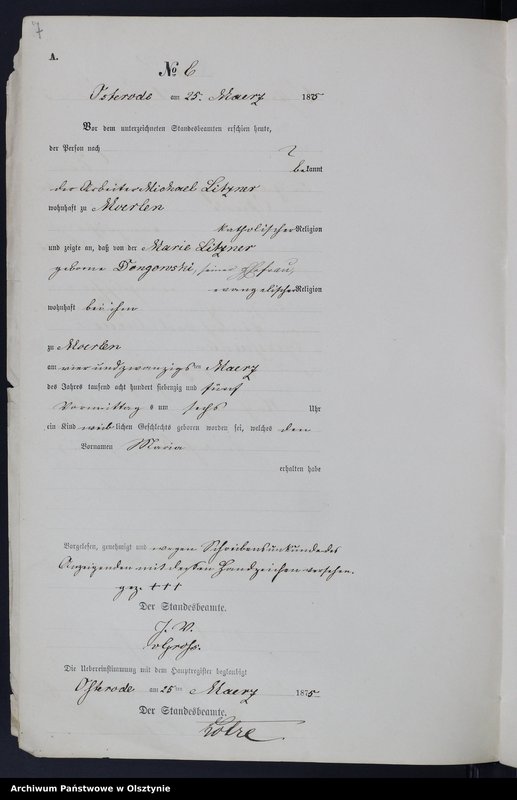 7
A.
No 6
Osterode am 25. Maerz 1875
Vor dem unterzeichneten Standesbeamten erschien heute,
der Person nach
bekannt
der Arbeiter Michael Litzner
wohnhaft zu Moerlen
katholischer Religion
und zeigte an, daß von der Marie Litzner
geborne Dongowski, seiner Ehefrau,
evangelischer Religion
wohnhaft bei ihm
zu Moerlen
am vierundzwanzigsten Maerz
des Jahres tausend acht hundert siebenzig und fünf
Vormittags um sechs Uhr
ein Kind weiblichen Geschlechts geboren worden sei, welches den
Vornamen Maria
erhalten habe
Vorgelesen, genehmigt und wegen Schreibensunkunde des
Anzeigenden mit dessen Handzeichen versehen.
gez. +++
Der Standesbeamte.
J. V.
v Gross.
Die Uebereinstimmung mit dem Hauptregister beglaubigt
Osterode am 25ten Maerz 1875
Der Standesbeamte.
Archiwum Państwowe w Olsztynie